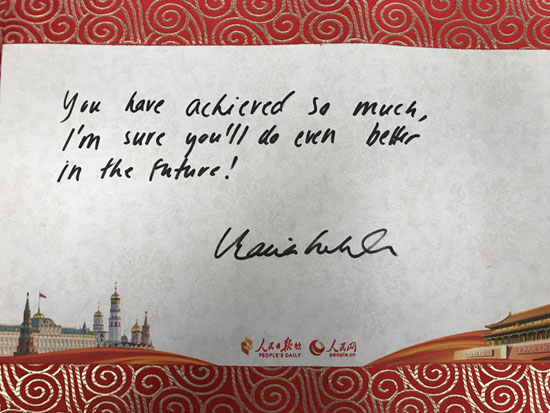 You have achieved so much,
I'm sure you'll do even better
in the future!
人民日报社
PEOPLE'S DAILY
人民网
people.cn